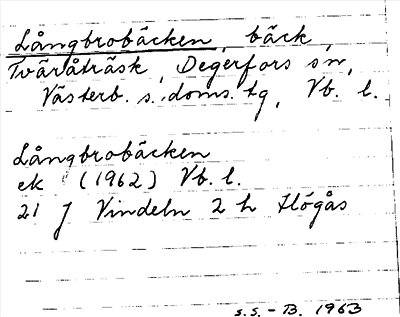 Långbrobäcken, bäck,
Tväråträsk, Degerfors sn,
Västerb. s. doms. tg, Vb. l.
Långbrobäcken
ek (1962) Vb. l.
21 J Vindeln 2 h Högås
s.s. - B. 1963